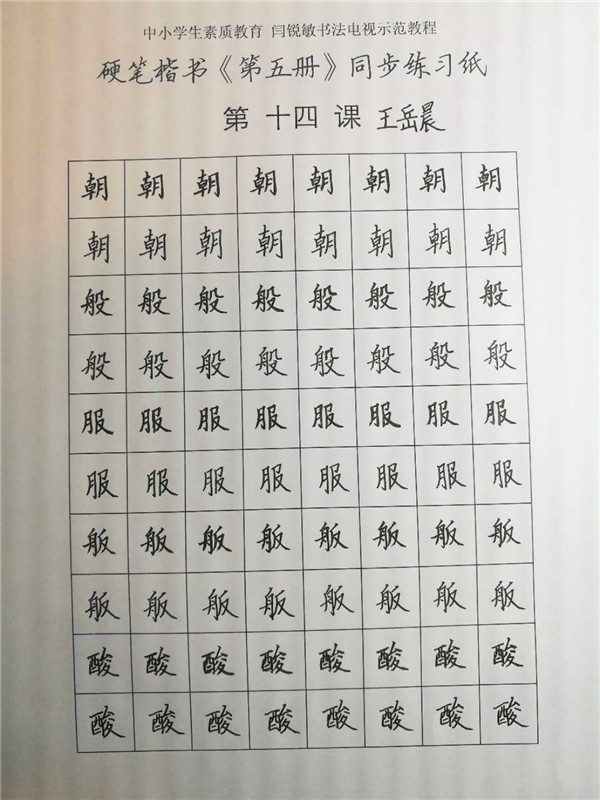 中小学生素质教育 闫锐敏书法电视示范教程
硬笔楷书《第五册》同步练习纸
第 十四 课 王岳晨
朝 朝 朝 朝 朝 朝 朝 朝
朝 朝 朝 朝 朝 朝 朝 朝
般 般 般 般 般 般 般 般
般 般 般 般 般 般 般 般
服 服 服 服 服 服 服 服
服 服 服 服 服 服 服 服
舨 舨 舨 舨 舨 舨 舨 舨
舨 舨 舨 舨 舨 舨 舨 舨
酸 酸 酸 酸 酸 酸 酸 酸
酸 酸 酸 酸 酸 酸 酸 酸